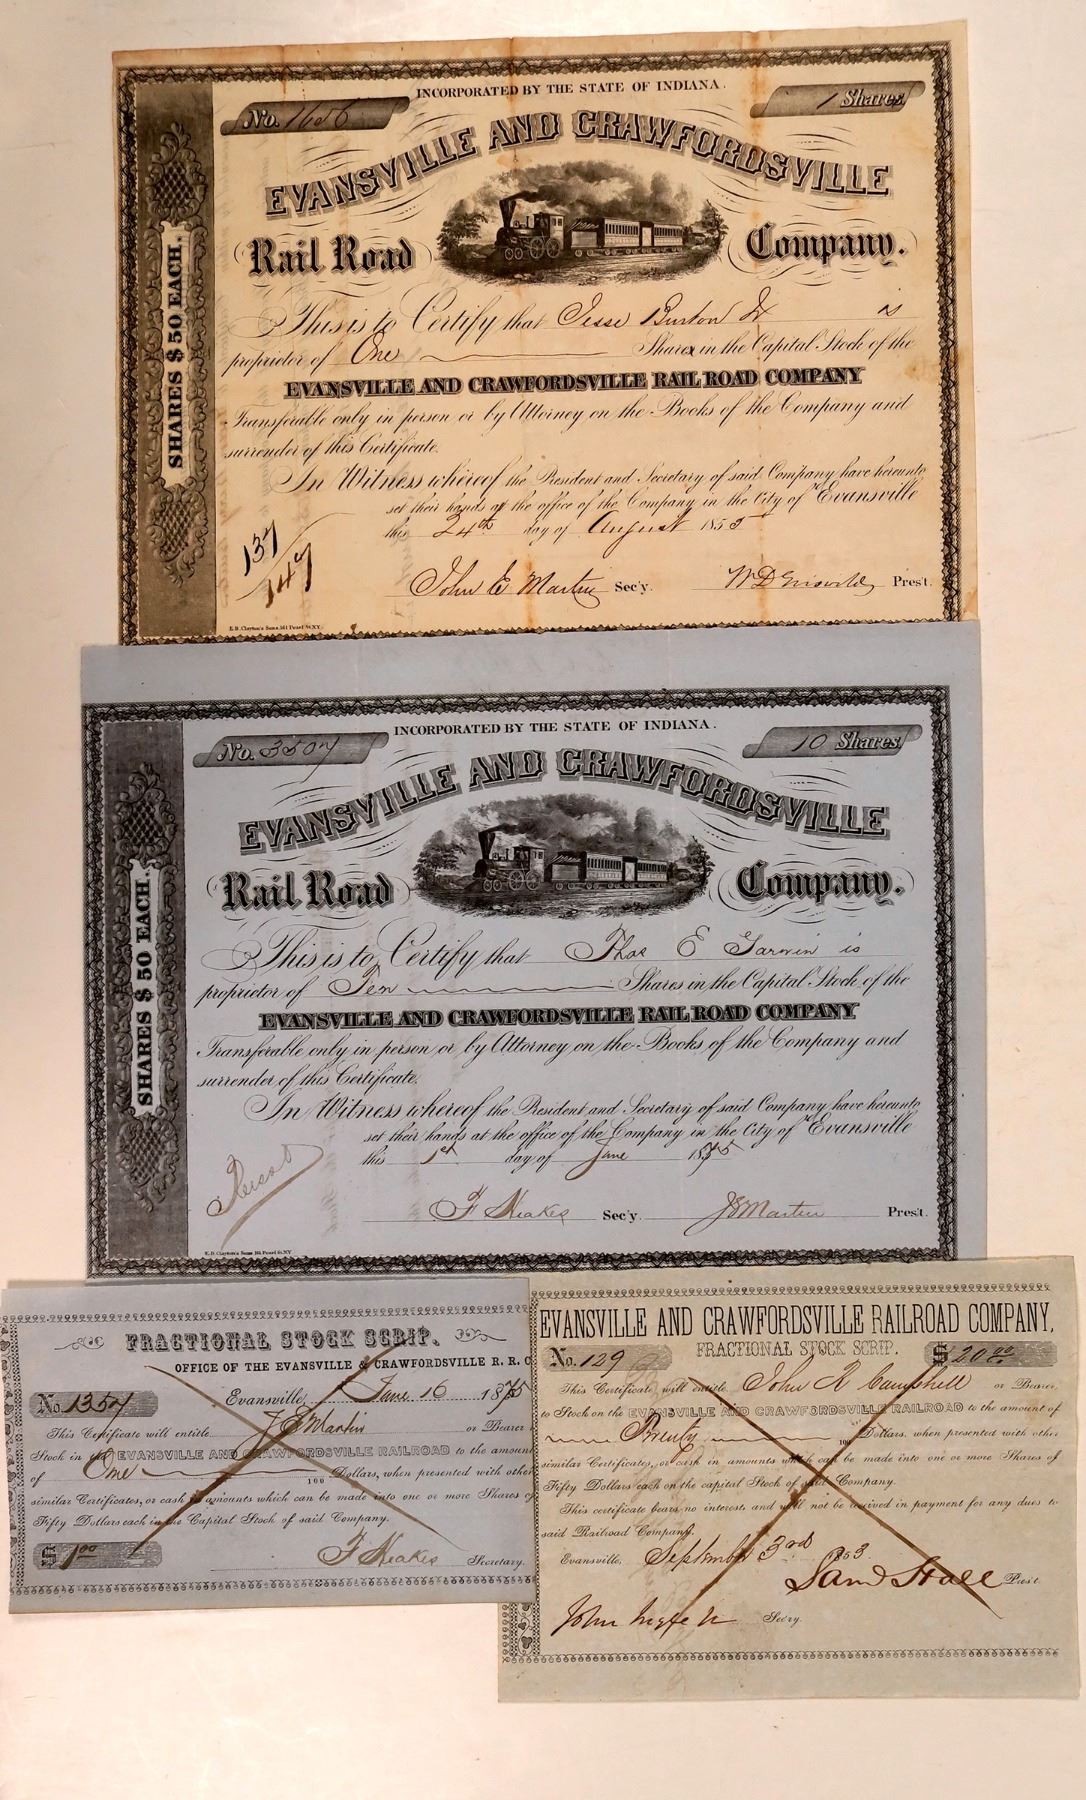 INCORPORATED BY THE STATE OF INDIANA.
No. 1656
1 Shares
EVANSVILLE AND CRAWFORDSVILLE
Rail Road Company.
SHARES $50 EACH.
This is to Certify that Jesse Burton Jr is
proprietor of One Shares in the Capital Stock of the
EVANSVILLE AND CRAWFORDSVILLE RAIL ROAD COMPANY
Transferable only in person or by Attorney on the Books of the Company and
surrender of this Certificate.
In Witness whereof the President and Secretary of said Company have hereunto
set their hands at the office of the Company in the City of Evansville
this 24th day of August 1855
137
147
John E Martin Sec'y. W D Griswold Pres't.
E.B. Clayton's Sons 161 Pearl St. N.Y.
INCORPORATED BY THE STATE OF INDIANA.
No. 3507
10 Shares
EVANSVILLE AND CRAWFORDSVILLE
Rail Road Company.
SHARES $50 EACH.
This is to Certify that Thos E Garvin is
proprietor of Ten Shares in the Capital Stock of the
EVANSVILLE AND CRAWFORDSVILLE RAIL ROAD COMPANY
Transferable only in person or by Attorney on the Books of the Company and
surrender of this Certificate.
In Witness whereof the President and Secretary of said Company have hereunto
set their hands at the office of the Company in the City of Evansville
this 1st day of June 1875
Sec'y. J E Martin Pres't.
E.B. Clayton's Sons 161 Pearl St. N.Y.
FRACTIONAL STOCK SCRIP.
OFFICE OF THE EVANSVILLE & CRAWFORDSVILLE R. R. C
No. 1357 Evansville, June 16 1875
This Certificate will entitle J E Martin or Bearer
Stock in the EVANSVILLE AND CRAWFORDSVILLE RAILROAD to the amount
of One 100 Dollars, when presented with other
similar Certificates, or cash in amounts which can be made into one or more Shares of
Fifty Dollars each in the Capital Stock of said Company.
$ 1.00 Secretary.
EVANSVILLE AND CRAWFORDSVILLE RAILROAD COMPANY,
No. 129 FRACTIONAL STOCK SCRIP. $ 20.00
This Certificate will entitle John R Campbell or Bearer
to Stock on the EVANSVILLE AND CRAWFORDSVILLE RAILROAD to the amount of
Twenty 100 Dollars, when presented with other
similar Certificates, or cash in amounts which can be made into one or more Shares of
Fifty Dollars each on the capital Stock of said Company.
This certificate bears no interest and will not be received in payment for any dues to
said Railroad Company.
Evansville, September 3rd 1853
Saml Hall Pres't
John Secry.